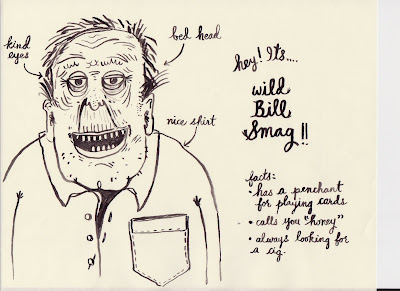 kind
eyes
bed head
nice shirt
hey! Its....
wild
Bill
Smag!!
facts:
• has a penchant
for playing cards
• calls you "honey"
• always looking for
a cig.